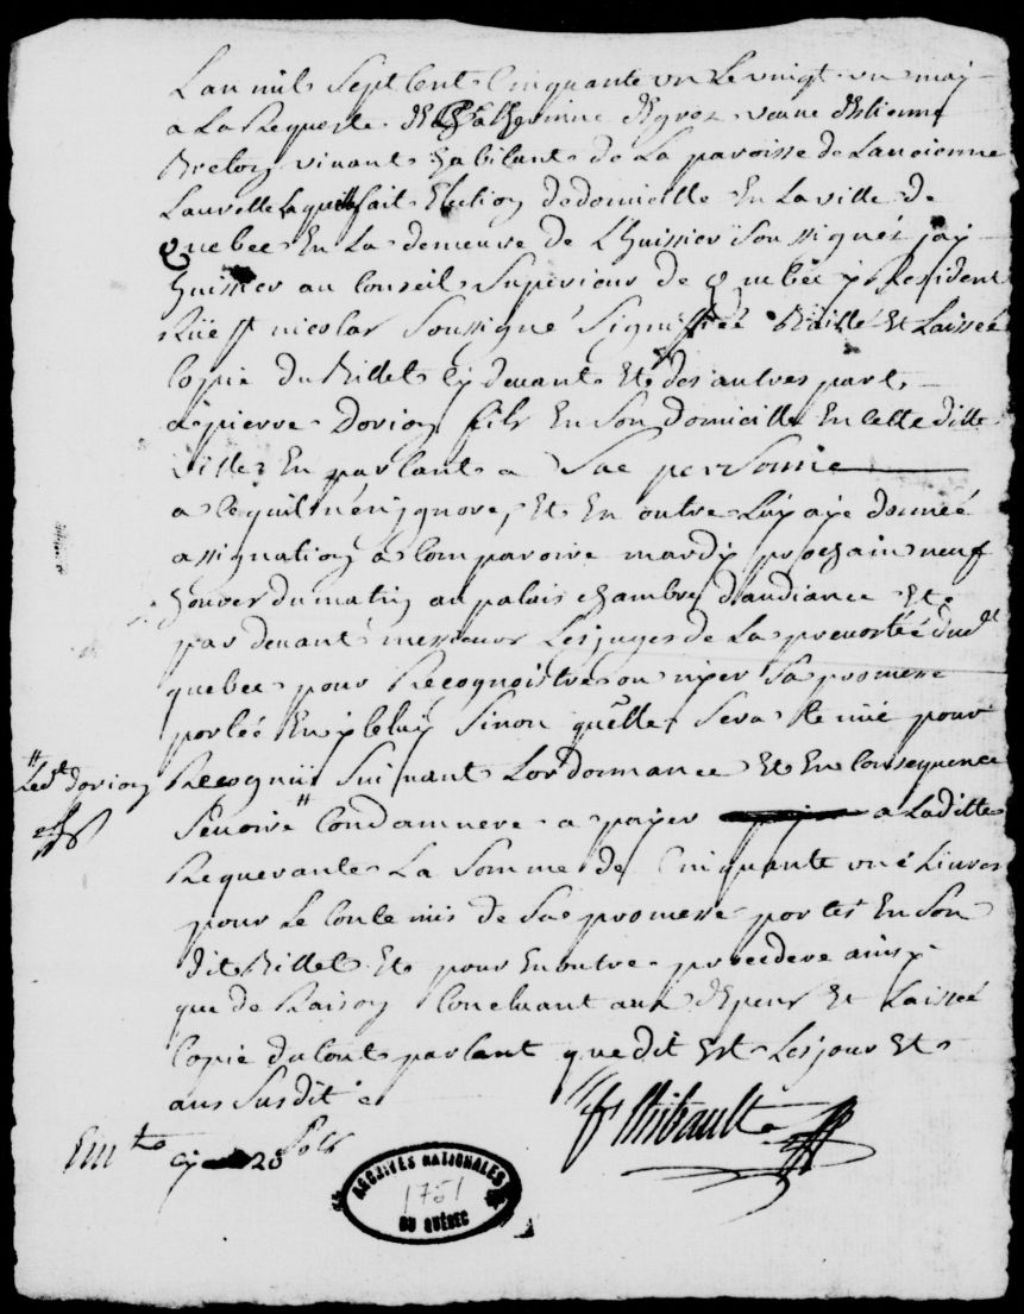 Lan mil Sept Cent Cinquante un Le vingt un may
a La Requeste de Catherinne veuve destienne
Breton vivant habitant de La paroisse de Lancienne
Laurette Laquelle fait Election dedomicille En La ville de
Quebec En La demeure de Lhuissier Soussigné jay
huissier au Conseil Superieur de quebec y Resident
Rüe St nicolas Soussigné Signiffiée Baillé Et Laissée
Copie du Billet Cy devant Et des autres part
a pierre Dorion fils En Son Domicille En Cette ditte
ville En parlant a Sae personne
a Cequil nen jgnore, Et En outre Luy aye donnée
assignation a Comparoire mardy prochain neuf
houres du matin au palais chambre daudiance Et
par devant messieurs Les juges de La prevosté dud
quebec pour Recognoistre ou nyer Sa promesse
portéé En yceluy Sinon quelle Sera tenüe pour
Recognüe Suivant Lordonnance Et En Consequence
Led. dorion
Sevoire Condamnere a payer a Laditte
Requerante La Somme de Cinquante une Livres
pour Le Contenus de Sae promesse portes En Son
dit Billet Et pour En outre proceddere ainsy
que de Raison Concluant aux depens Et Laissée
Copie du tout parlant que dit Est Les jour Et
ans Susdit
Thibault
20 Sols
ARCHIVES NATIONALES
1751
DU QUÉBEC